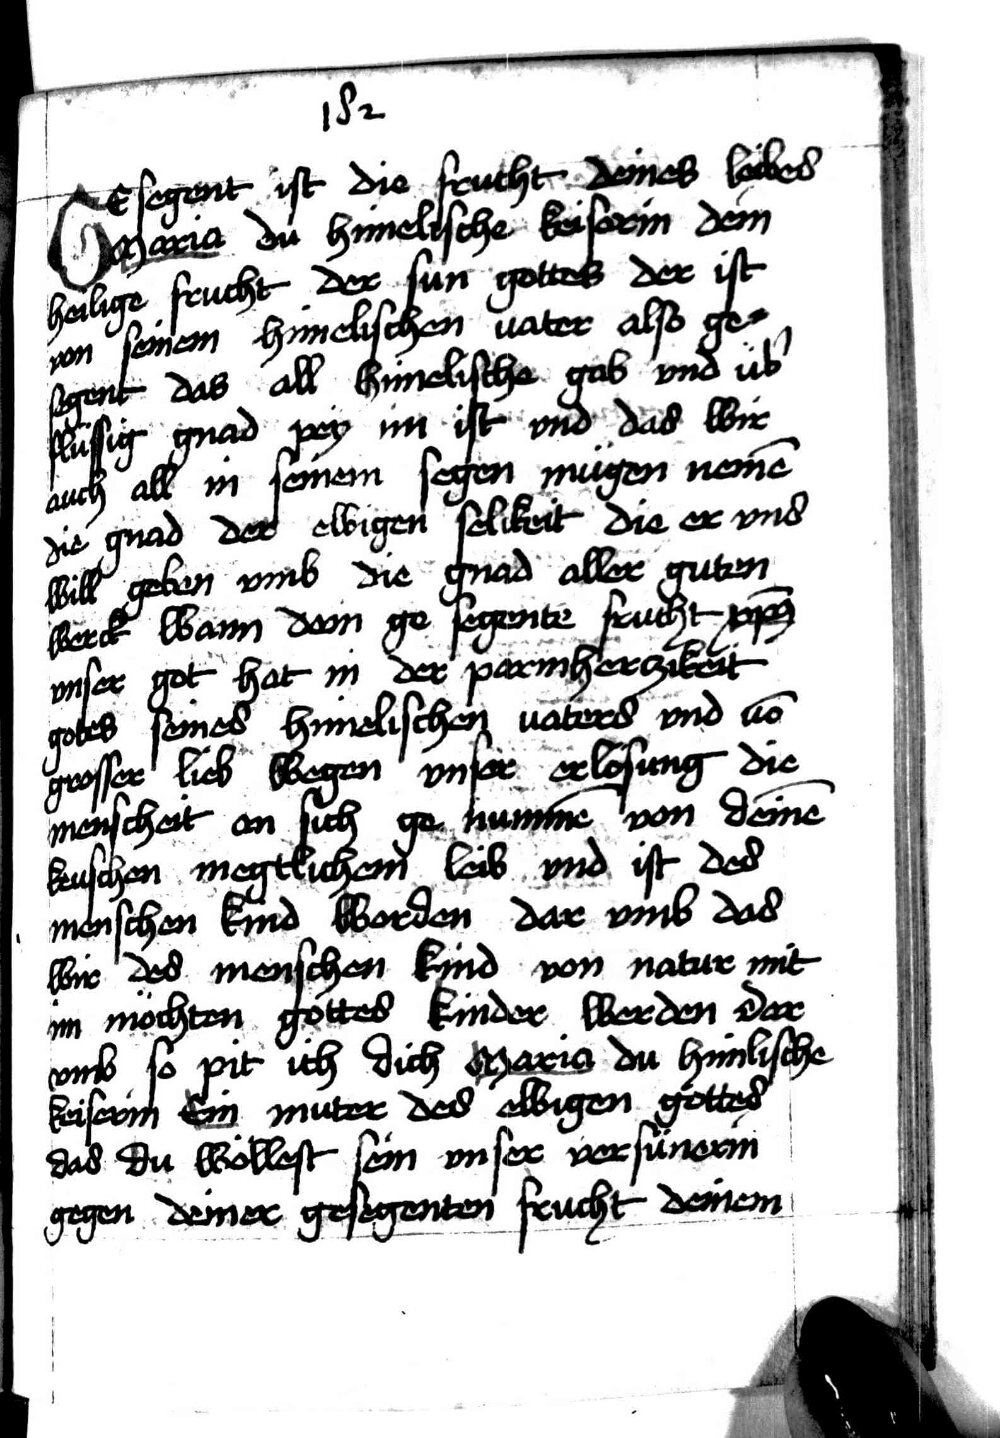 182
GEsegent ist die frucht deines leibes
Maria du himelische keiserin dein
heilige frucht der sun gottes der ist
von seinem himelischen vater also ge-
segent das all himelische gab vnd üb'
flüssig gnad pey im ist vnd das wir
auch all in seinem segen mügen nemē
die gnad der ewigen selikeit die er vns
will geben vmb die gnad aller guten
werck wann dein ge segente frucht xp̄s
vnser got hat in der parmherczikeit
gotes seines himelischen vaters vnd vō
grosser lieb wegen vnser erlösung die
menscheit an sich ge nummē von deinē
keuschen megtlichem leib vnd ist des
menschen kind worden dar vmb das
wir des menschen kind von natur mit
im möchten gottes kinder werden dar
vmb so pit ich dich Maria du himlische
keiserin Ein muter des ewigen gottes
das du wöllest sein vnser versünerin
gegen deiner gesegenten frucht deinem